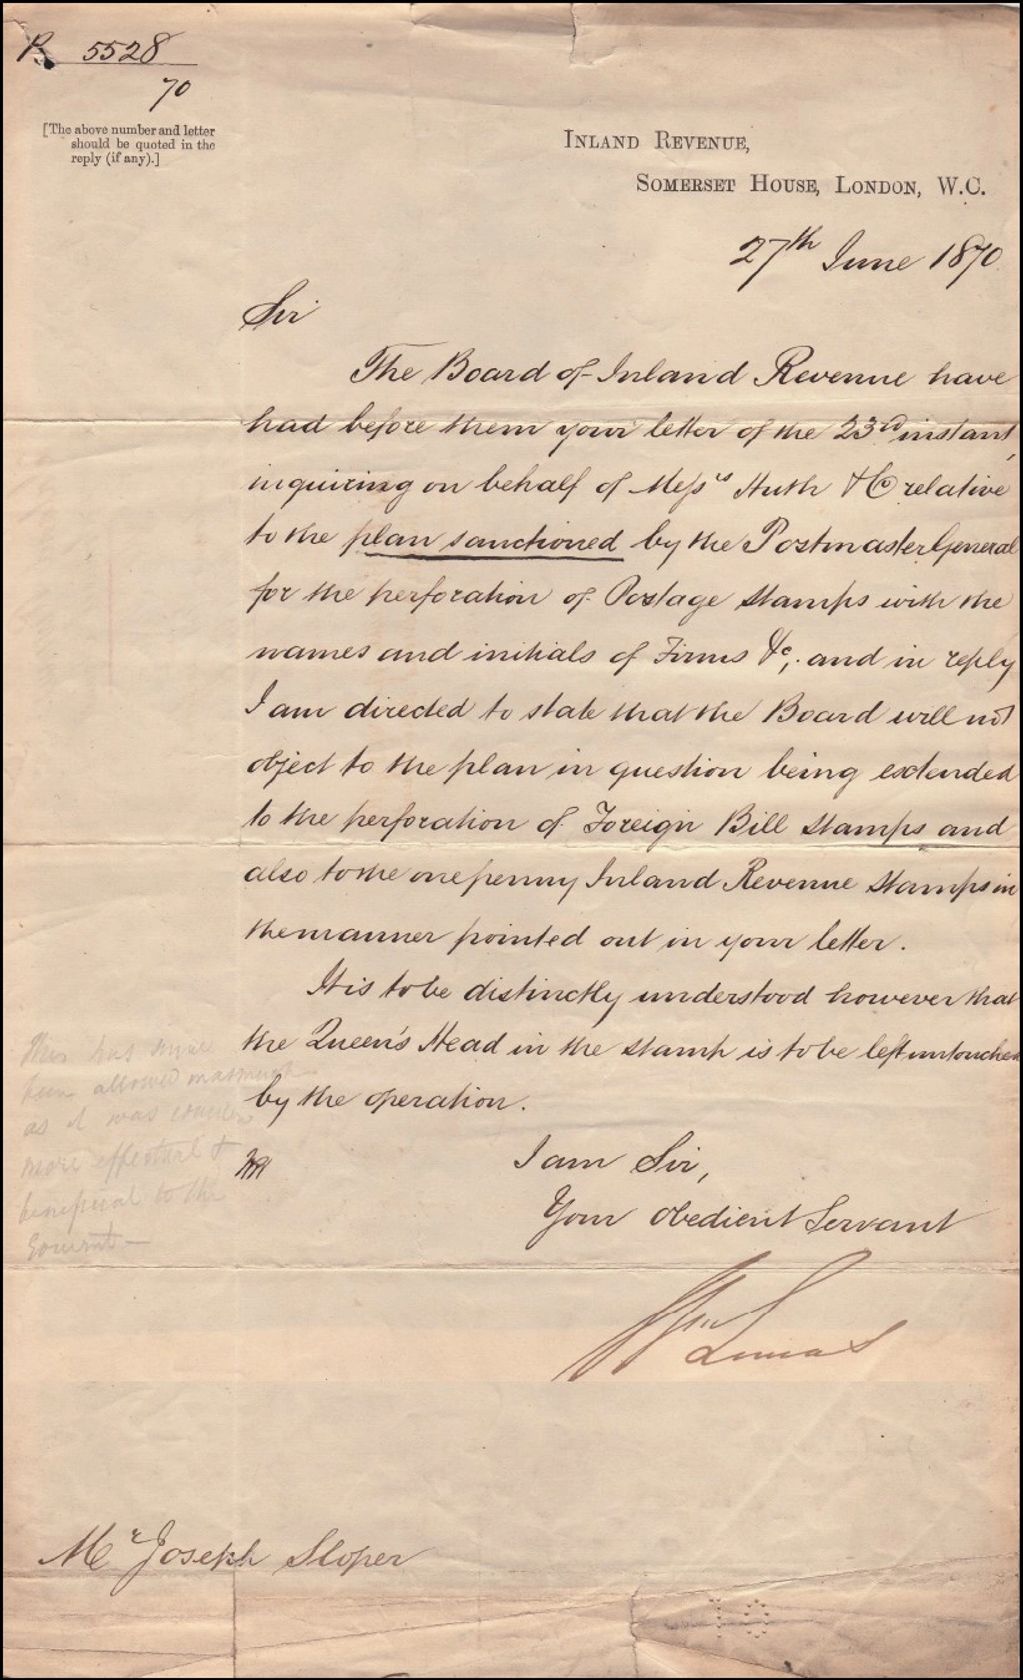 R. 5528
70
[The above number and letter
should be quoted in the
reply (if any).]
INLAND REVENUE,
SOMERSET HOUSE, LONDON, W.C.
27th June 1870
Sir
The Board of Inland Revenue have
had before them your letter of the 23rd instant,
inquiring on behalf of Messrs Huth & Co relative
to the plan sanctioned by the Postmaster General
for the perforation of Postage Stamps with the
names and initials of Firms &c, and in reply
I am directed to state that the Board will not
object to the plan in question being extended
to the perforation of Foreign Bill Stamps and
also to the one penny Inland Revenue Stamps in
the manner pointed out in your letter.
It is to be distinctly understood however that
the Queen's Head in the stamp is to be left untouched
by the operation.
This has since
been allowed inasmuch
as it was
more effectual &
beneficial to the
I am Sir,
Your obedient Servant
Mr Joseph Sloper